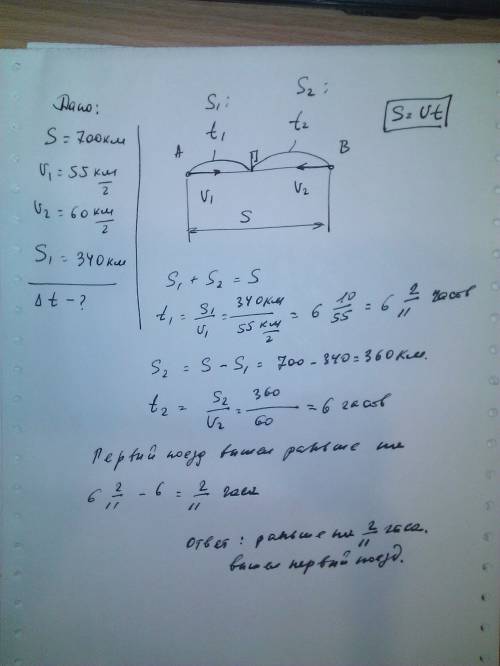 Дано:
S = 700 км
V₁ = 55 км/г
V₂ = 60 км/г
S₁ = 340 км
Δt - ?
S₁; S₂;
t₁ t₂
S = Vt
A П B
V₁ V₂
S
S₁ + S₂ = S
t₁ = S₁/V₁ = 340 км / 55 км/г = 6 10/55 = 6 2/11 часов
S₂ = S - S₁ = 700 - 340 = 360 км.
t₂ = S₂/V₂ = 360/60 = 6 часов
Первый поезд вышел раньше на
6 2/11 - 6 = 2/11 часа
Ответ: раньше на 2/11 часа.
вышел первый поезд.